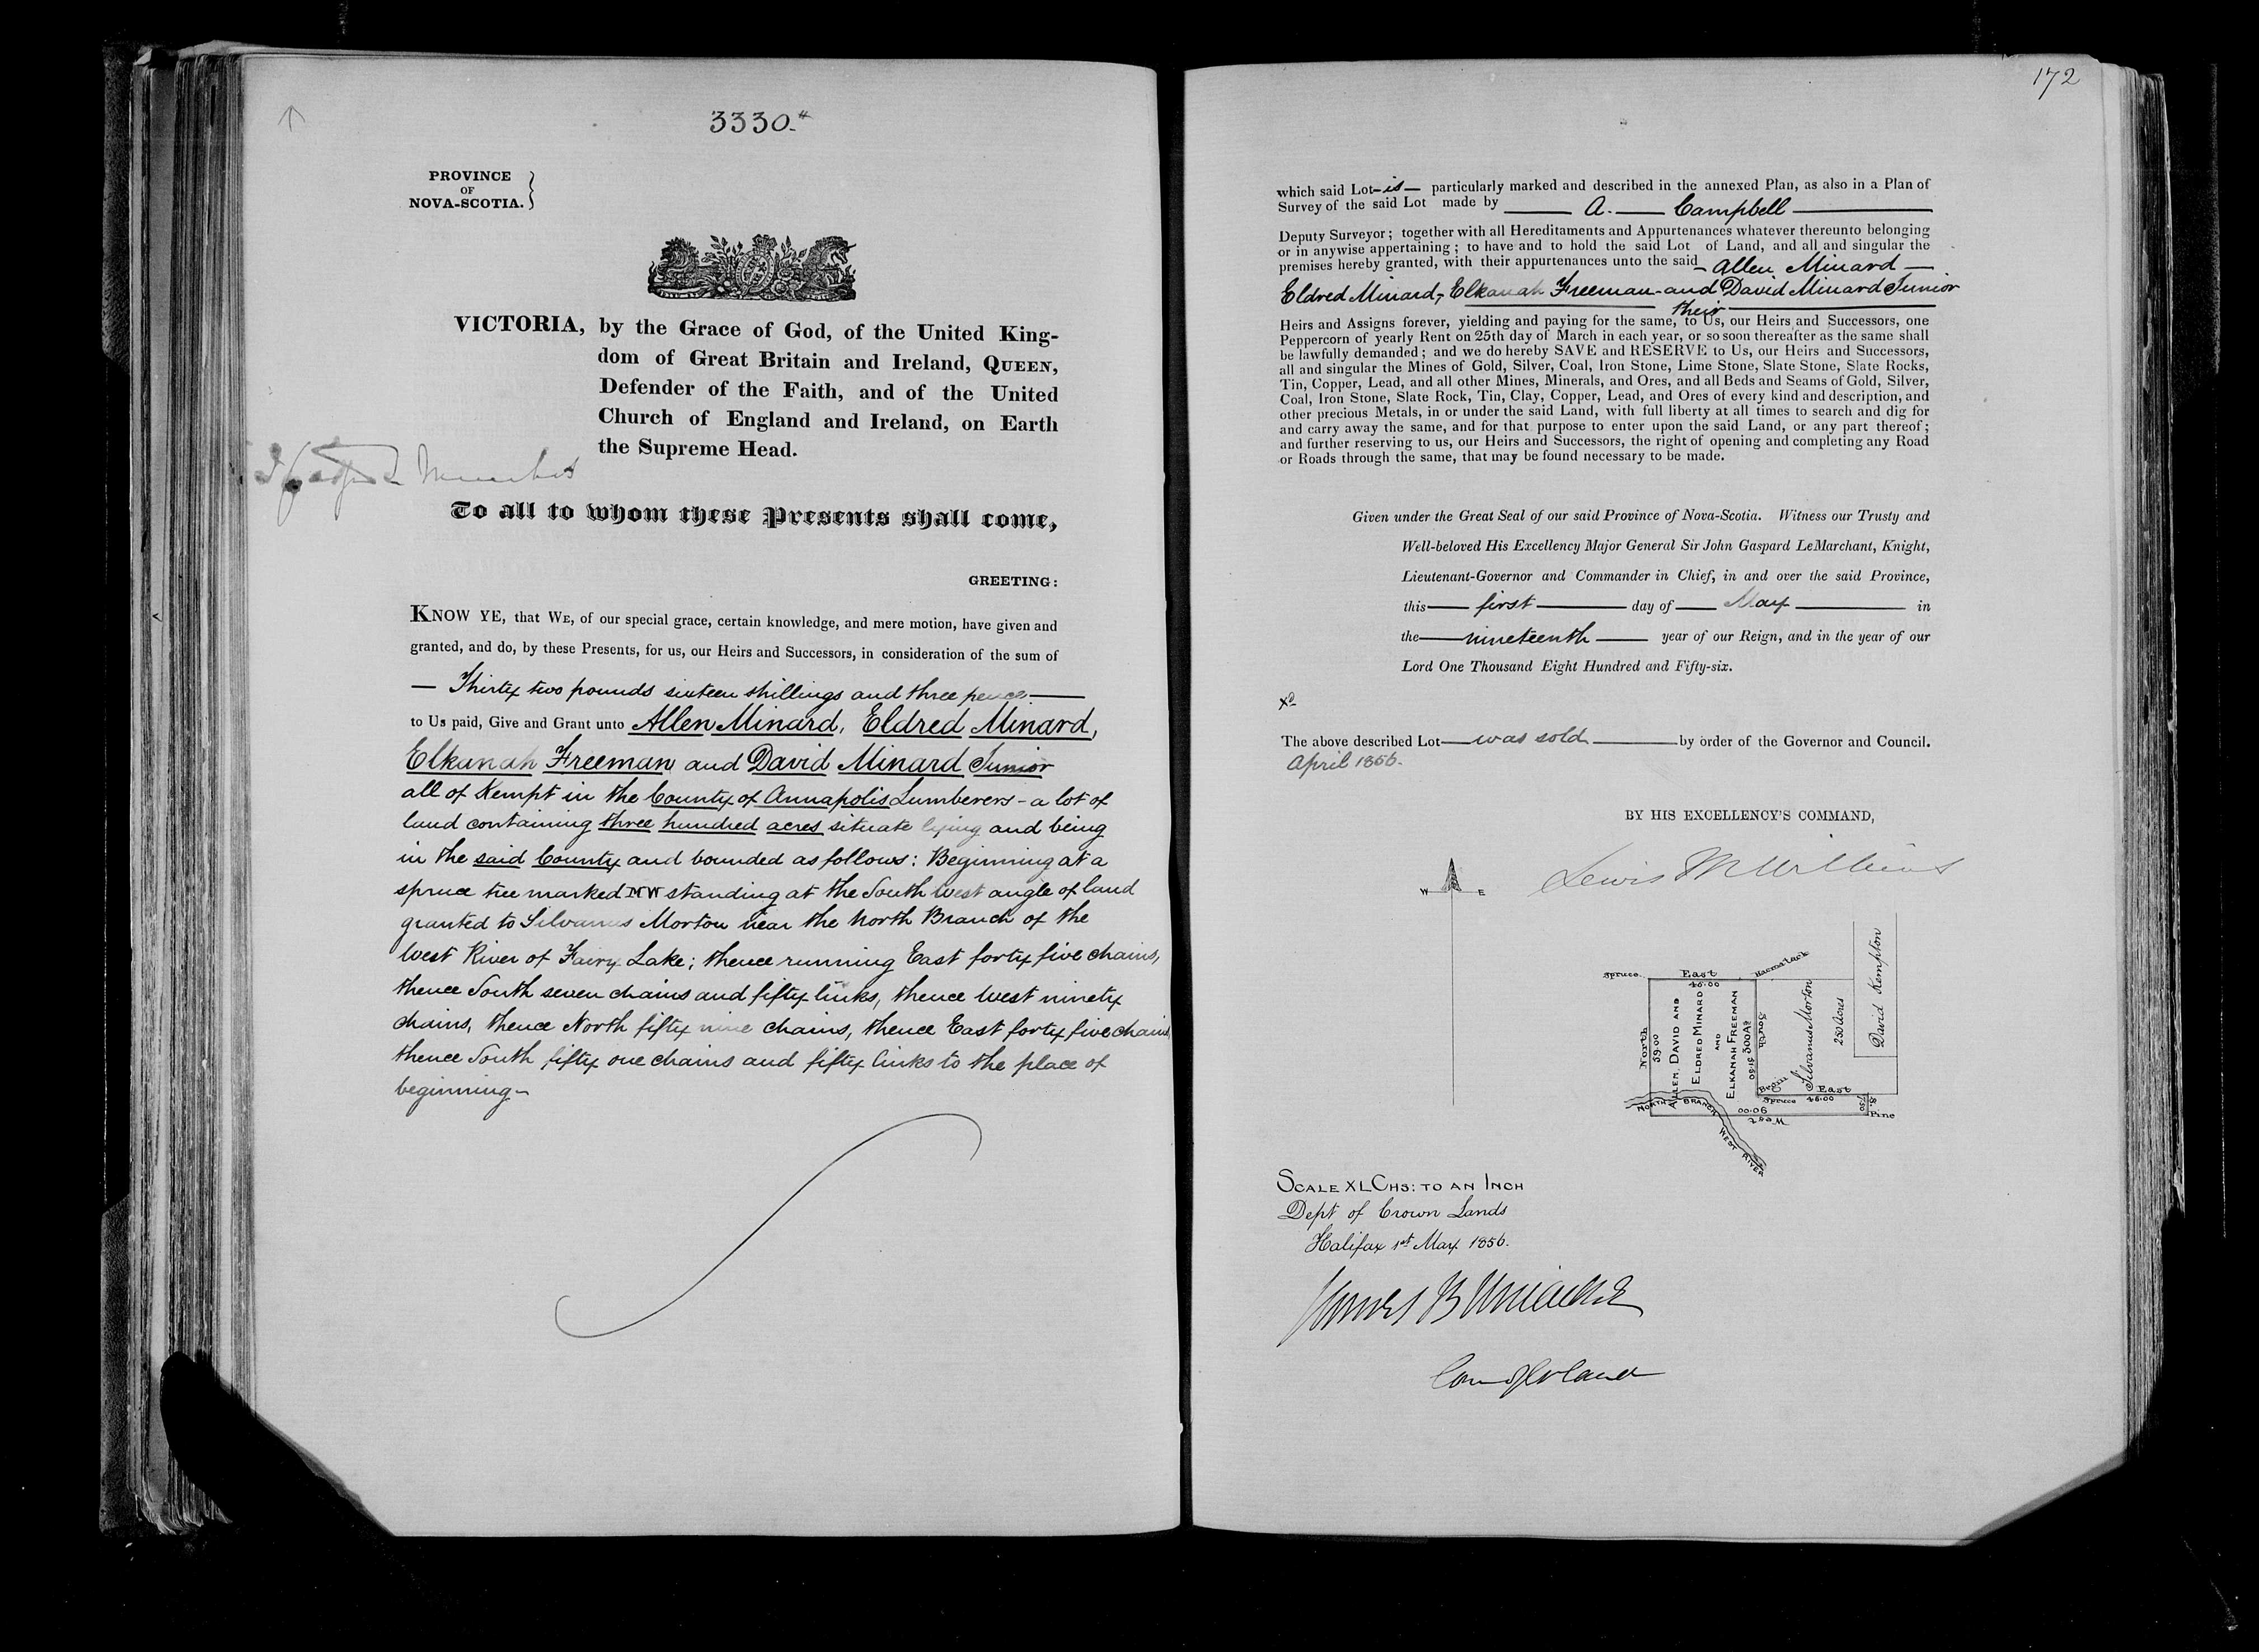 3330.
PROVINCE
OF
NOVA-SCOTIA.
VICTORIA, by the Grace of God, of the United King-
dom of Great Britain and Ireland, QUEEN,
Defender of the Faith, and of the United
Church of England and Ireland, on Earth
the Supreme Head.
To all to whom these Presents shall come,
GREETING:
KNOW YE, that WE, of our special grace, certain knowledge, and mere motion, have given and
granted, and do, by these Presents, for us, our Heirs and Successors, in consideration of the sum of
— Thirty two pounds sixteen shillings and three pence —
to Us paid, Give and Grant unto Allen Minard, Eldred Minard,
Elkanah Freeman and David Minard Junior
all of Kempt in the County of Annapolis Lumberers - a lot of
land containing three hundred acres situate lying and being
in the said County and bounded as follows: Beginning at a
spruce tree marked MW standing at the South West angle of land
granted to Silvanus Morton near the North Branch of the
West River of Fairy Lake; thence running East forty five chains,
thence South seven chains and fifty links, thence West ninety
chains, thence North fifty nine chains, thence East forty five chains
thence South fifty one chains and fifty links to the place of
beginning -
172
which said Lot - is - particularly marked and described in the annexed Plan, as also in a Plan of
Survey of the said Lot made by A. Campbell
Deputy Surveyor; together with all Hereditaments and Appurtenances whatever thereunto belonging
or in anywise appertaining; to have and to hold the said Lot of Land, and all and singular the
premises hereby granted, with their appurtenances unto the said - Allen Minard -
Eldred Minard, Elkanah Freeman - and David Minard Junior
their
Heirs and Assigns forever, yielding and paying for the same, to Us, our Heirs and Successors, one
Peppercorn of yearly Rent on 25th day of March in each year, or so soon thereafter as the same shall
be lawfully demanded; and we do hereby SAVE and RESERVE to Us, our Heirs and Successors,
all and singular the Mines of Gold, Silver, Coal, Iron Stone, Lime Stone, Slate Stone, Slate Rocks,
Tin, Copper, Lead, and all other Mines, Minerals, and Ores, and all Beds and Seams of Gold, Silver,
Coal, Iron Stone, Slate Rock, Tin, Clay, Copper, Lead, and Ores of every kind and description, and
other precious Metals, in or under the said Land, with full liberty at all times to search and dig for
and carry away the same, and for that purpose to enter upon the said Land, or any part thereof;
and further reserving to us, our Heirs and Successors, the right of opening and completing any Road
or Roads through the same, that may be found necessary to be made.
Given under the Great Seal of our said Province of Nova-Scotia. Witness our Trusty and
Well-beloved His Excellency Major General Sir John Gaspard LeMarchant, Knight,
Lieutenant-Governor and Commander in Chief, in and over the said Province,
this first day of May in
the nineteenth year of our Reign, and in the year of our
Lord One Thousand Eight Hundred and Fifty-six.
xd
The above described Lot was sold by order of the Governor and Council.
April 1856.
BY HIS EXCELLENCY'S COMMAND,
Lewis M Wilkins
W E
Spruce East Haematack
45.00
North
59.00
ALLEN, DAVID AND
ELDRED MINARD
AND
ELKANAH FREEMAN
300 As
51.50
South
Silvanus Morton
250 Acres
David Kempton
Begin
Spruce
East
45.00
S.
7.50
Pine
90.00
West
NORTH BRANCH
WEST RIVER
SCALE XL CHS: TO AN INCH
Dept of Crown Lands
Halifax 1st May 1856.
James B Uniacke